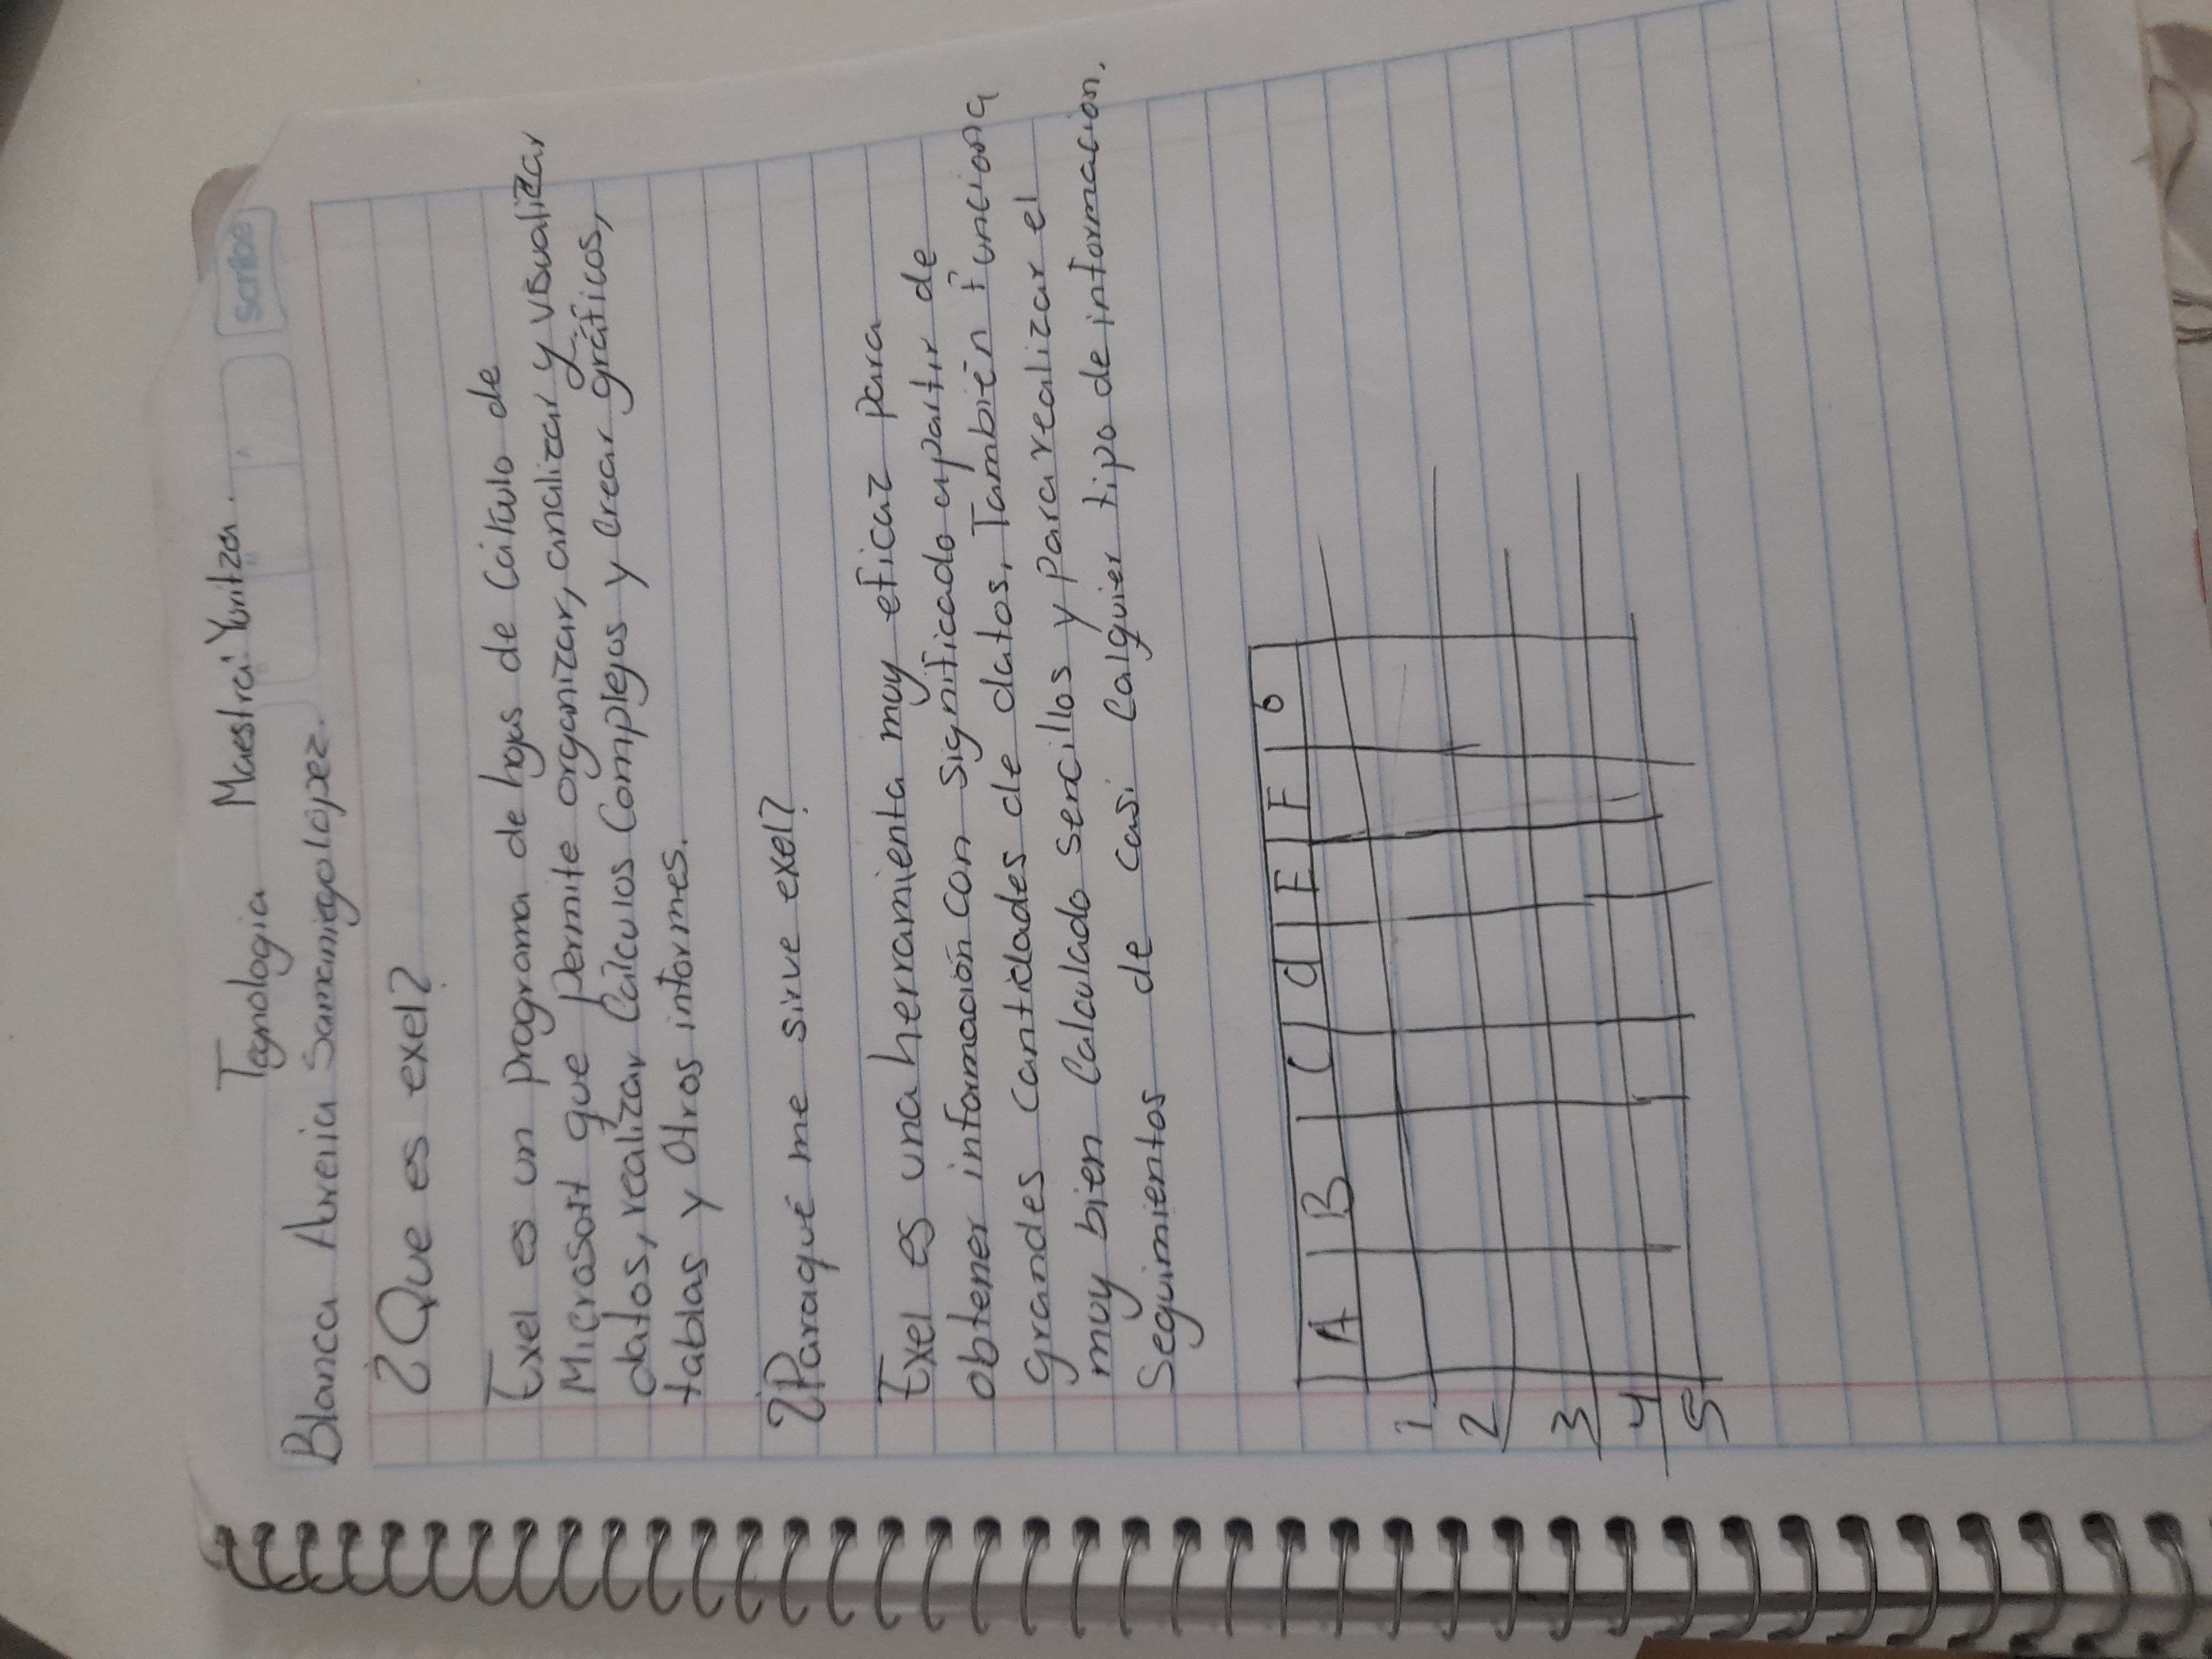 scribe
Tegnologia Maestra: Yuritza.
Blanca Aurelia Samaniego López.
¿Que es exel?
Exel es un programa de hojas de Cálculo de
Microsoft que permite organizar, analizar y visualizar
datos, realizar Cálculos Complejos y crear gráficos,
tablas y Otros informes.
¿Paraqué me sirve exel?
Exel es una herramienta muy eficaz para
obtener información con significado apartir de
grandes cantidades de datos, También funciona
muy bien Calculado sencillos y para realizar el
Seguimientos de casi Calquier tipo de informacion.
A B C d E F 6
1
2
3
4
5